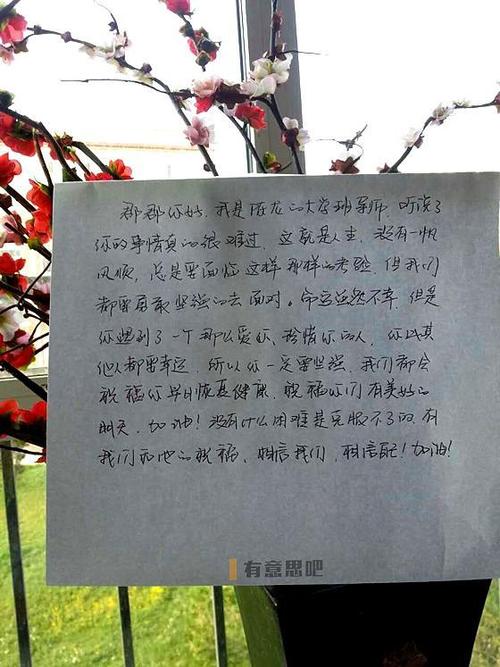 群群你好，我是陈龙的大学班导师，听说了
你的事情真的很难过，这就是人生，没有一帆
风顺，总是要面临这样那样的考验，但我们
都要勇敢坚强的去面对。命运虽然不幸，但是
你遇到了一个那么爱你、珍惜你的人，你比其
他人都要幸运，所以你一定要坚强，我们都会
祝福你早日恢复健康，祝福你们有美好的
明天，加油！没有什么困难是克服不了的，有
我们和他的祝福，相信我们，相信自己！加油！
有意思吧